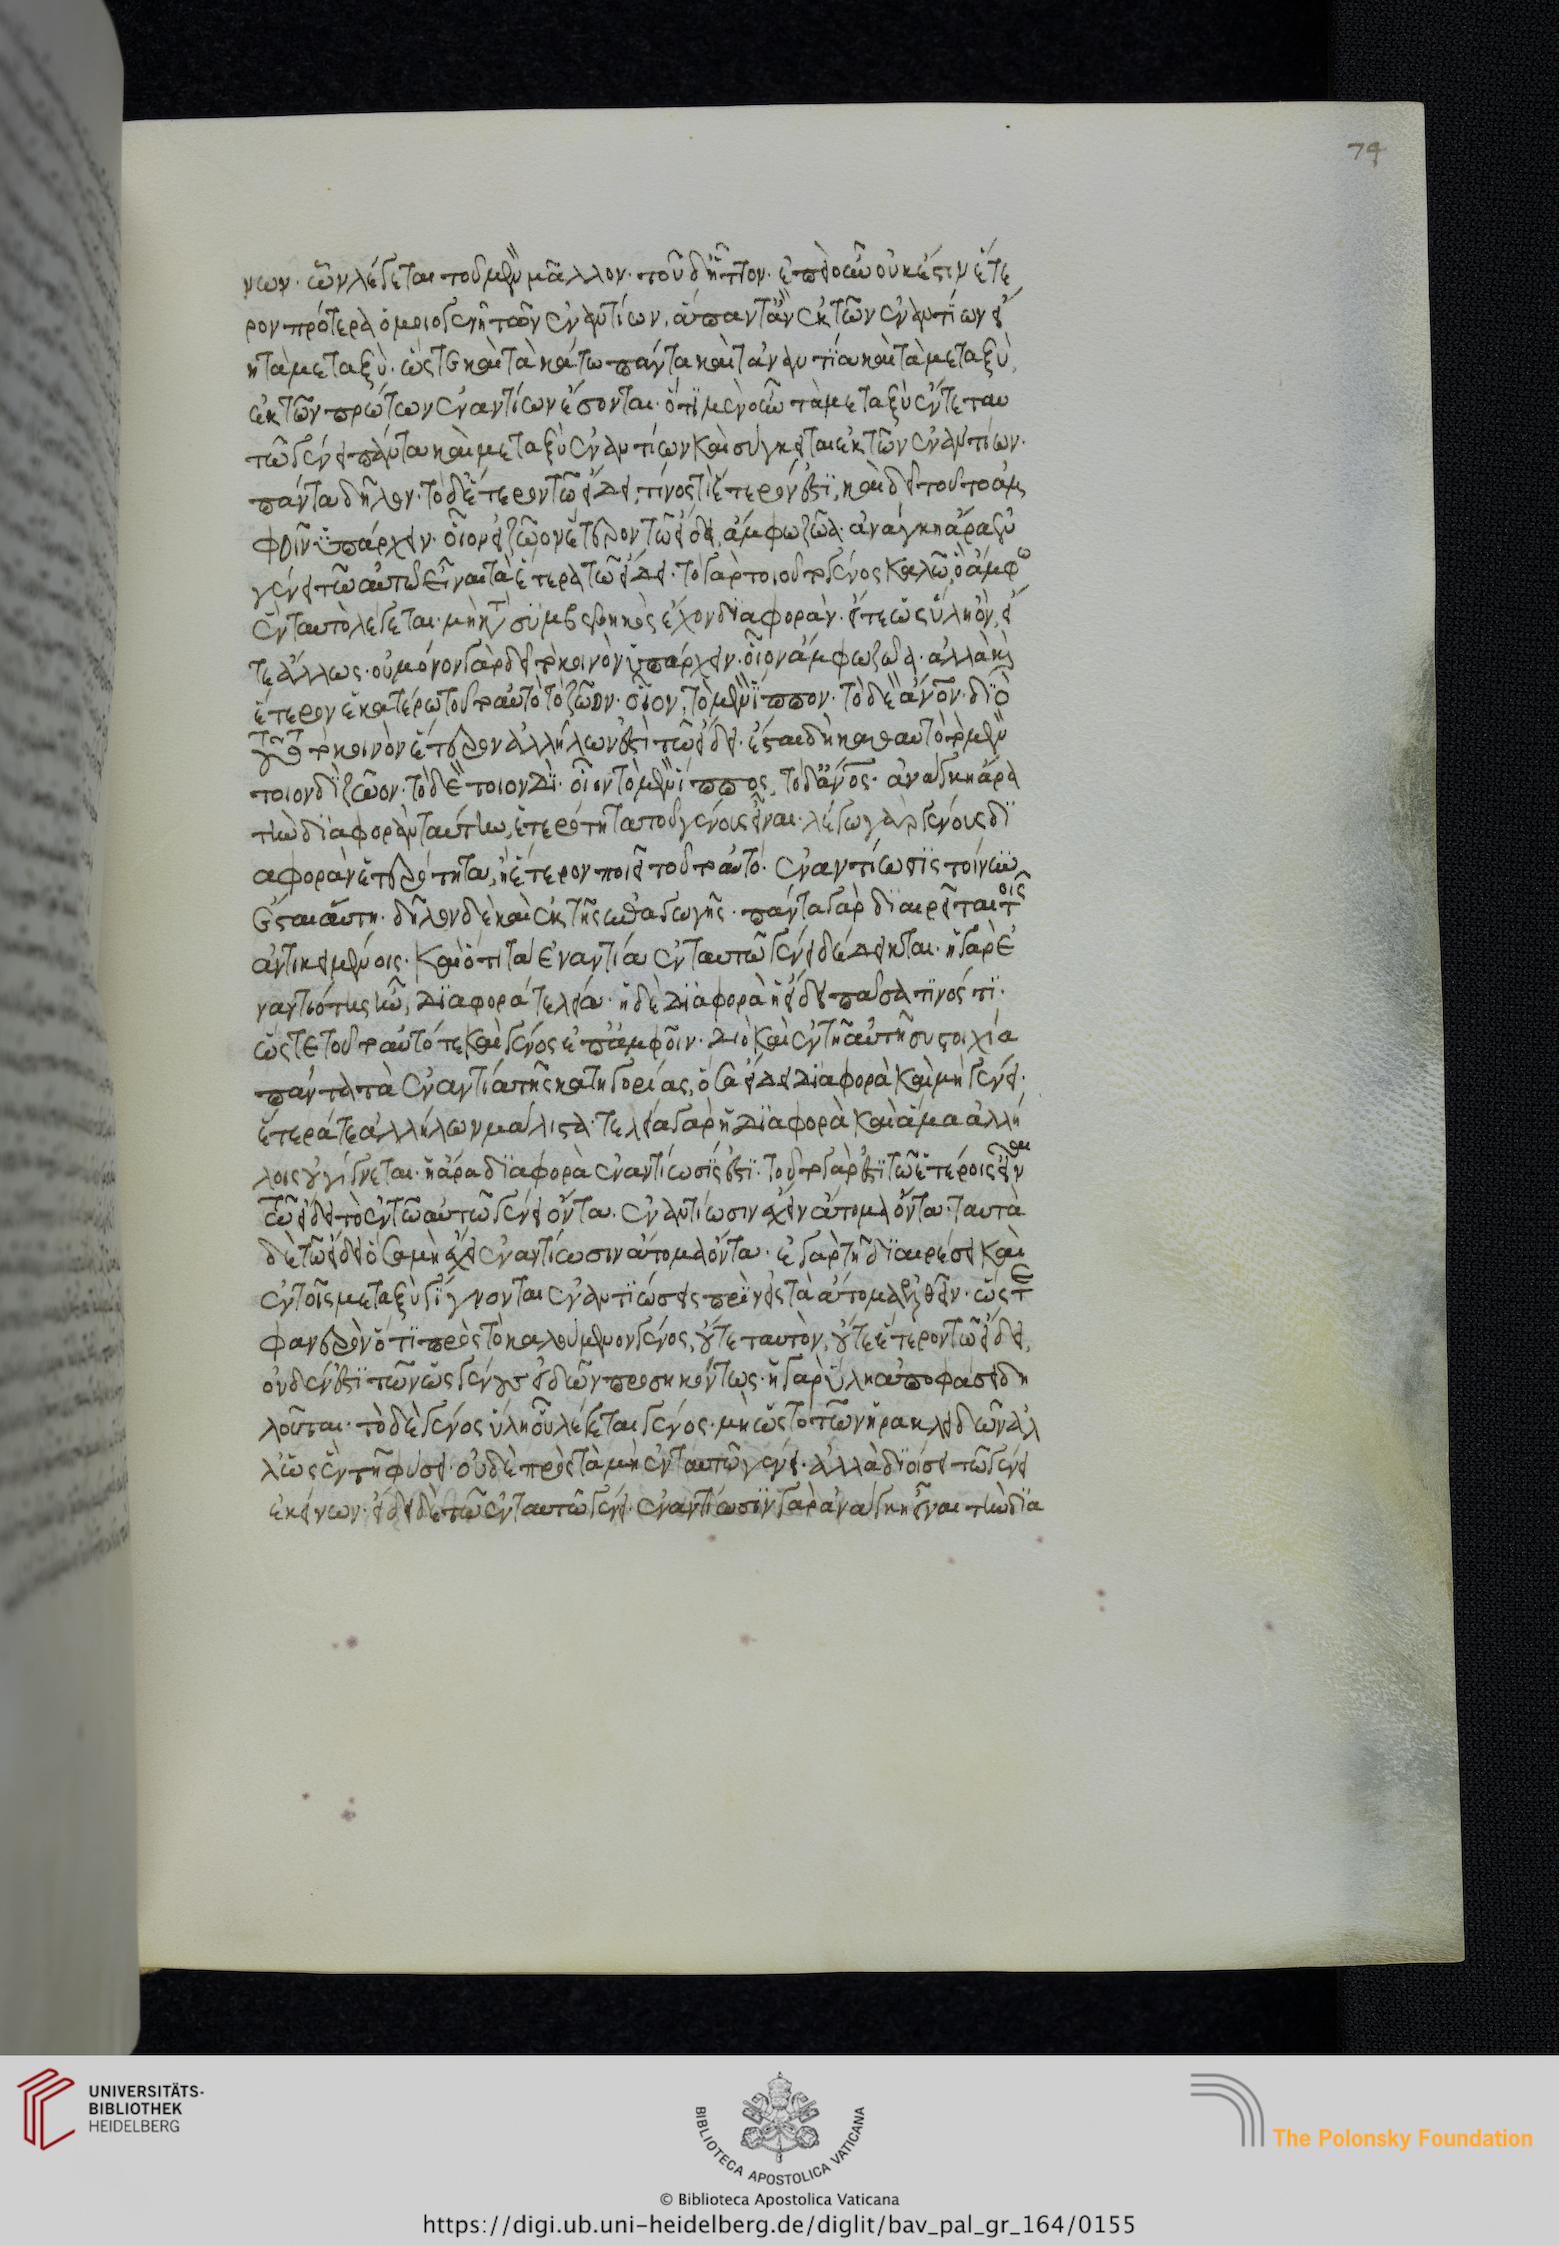 νων. ὧν λέγεται τοῦ μὲν μᾶλλον. τοῦ δ' ἧττον. ἐπεὶ οὖν οὐκ ἔστιν ἕτε
ρον πρότερα ὁμοιογενῆ τῶν ἐναντίων, ἅπαντ' ἂν ἐκ τῶν ἐναντίων εἴ
η τὰ μεταξὺ. ὥστε καὶ τὰ κάτω πάντα καὶ τἀναντία καὶ τὰ μεταξὺ
ἐκ τῶν πρώτων ἐναντίων ἔσονται. ὅτι μὲν οὖν τὰ μεταξὺ ἔν τε ταυ
τῷ γένει πάντα καὶ μεταξὺ ἐναντίων καὶ σύγκειται ἐκ τῶν ἐναντίων.
πάντα δῆλον. τὸ δ' ἕτερον τῷ εἴδει, τινός τι ἕτερόν ἐστι, καὶ δεῖ τοῦτο ἀμ
φοῖν ὑπάρχειν. οἷον εἰ ζῶον ἕτερον τῷ εἴδει, ἄμφω ζῶα. ἀνάγκη ἄρα ἐν
γένει τῷ αὐτῷ εἶναι τὰ ἕτερα τῷ εἴδει. τὸ γὰρ τοιοῦτο γένος καλῶ, ὃ ἄμφω
ἓν ταυτὸ λέγεται. μὴ κατὰ συμβεβηκὸς ἔχον διαφοράν. εἴτε ὡς ὕλη ὂν, εἴ
τε ἄλλως. οὐ μόνον γὰρ δεῖ τὸ κοινὸν ὑπάρχειν. οἷον ἄμφω ζῶα. ἀλλὰ καὶ
ἕτερον ἑκατέρω τοῦτο αὐτὸ τὸ ζῶον. οἷον, τὸ μὲν ἵππον. τὸ δὲ ἄνον. διὸ
τοῦτο τὸ κοινὸν ἕτερον ἀλλήλων ἐστὶ τῷ εἴδει. ἔσται δὴ καθ' αὑτὸ τὸ μὲν
τοιονδὶ ζῶον. τὸ δὲ τοιονδί. οἷον τὸ μὲν ἵππος, τὸ δ' ἄνος. ἀνάγκη ἄρα
τὴν διαφορὰν ταύτην, ἑτερότητα τοῦ γένους εἶναι. λέγω γὰρ γένους δι
αφορὰν ἑτερότητα, ἣ ἕτερον ποιεῖ τοῦτο αὐτό. ἐναντίωσις τοίνυν
ἔσται αὕτη. δῆλον δὲ καὶ ἐκ τῆς ἐπαγωγῆς. πάντα γὰρ διαιρεῖται τοῖς
ἀντικειμένοις. καὶ ὅτι τὰ ἐναντία ἐν ταυτῷ γένει δέδεικται. ἡ γὰρ ἐ
ναντιότης ἦν διαφορὰ τελεία. ἡ δὲ διαφορὰ ἡ εἴδει πᾶσα τινός τι.
ὥστε τοῦτο αὐτό τε καὶ γένος ἐπ' ἀμφοῖν. διὸ καὶ ἐν τῇ αὐτῇ συστοιχία
πάντα τὰ ἐναντία τῆς κατηγορίας, ὅσα εἴδει διάφορα καὶ μὴ γένει.
ἕτερά τε ἀλλήλων μάλιστα. τελεία γὰρ ἡ διαφορὰ καὶ ἅμα ἀλλή
λοις οὐ γίγνεται. ἡ ἄρα διαφορὰ ἐναντίωσίς ἐστι. τοῦτο γάρ ἐστι τῷ ἑτέροις εἶναι
τῷ εἴδει τὸ ἐν τῷ αὐτῷ γένει ὄντα. ἐναντίωσιν ἔχειν ἄτομα ὄντα. ταυτὰ
δὲ τῷ εἴδει ὅσα μὴ ἔχει ἐναντίωσιν ἄτομα ὄντα. ἐν γὰρ τῇ διαιρέσει καὶ
ἐν τοῖς μεταξὺ γίγνονται ἐναντιώσεις πρὶν εἰς τὰ ἄτομα ἐλθεῖν. ὥστε
φανερὸν ὅτι πρὸς τὸ καλούμενον γένος, οὔτε ταυτὸν, οὔτε ἕτερον τῷ εἴδει,
οὐδέν ἐστι τῶν ὡς γένους εἰδῶν προσηκόντως. ἡ γὰρ ὕλη ἀποφάσει δη
λοῦται. τὸ δὲ γένος ὕλη οὗ λέγεται γένος. μὴ ὡς τὸ τῶν ἡρακλειδῶν ἀλ
λ' ὡς ἐν τῇ φύσει. οὐδὲ πρὸς τὰ μὴ ἐν ταυτῷ γένει. ἀλλὰ διοίσει τῷ γένει
ἐκείνων. εἴδει δὲ τῶν ἐν ταυτῷ γένει. ἐναντίωσιν γὰρ ἀνάγκη εἶναι τὴν δια
74
UNIVERSITÄTS-
BIBLIOTHEK
HEIDELBERG
BIBLIOTECA APOSTOLICA VATICANA
The Polonsky Foundation
© Biblioteca Apostolica Vaticana
https://digi.ub.uni-heidelberg.de/diglit/bav_pal_gr_164/0155